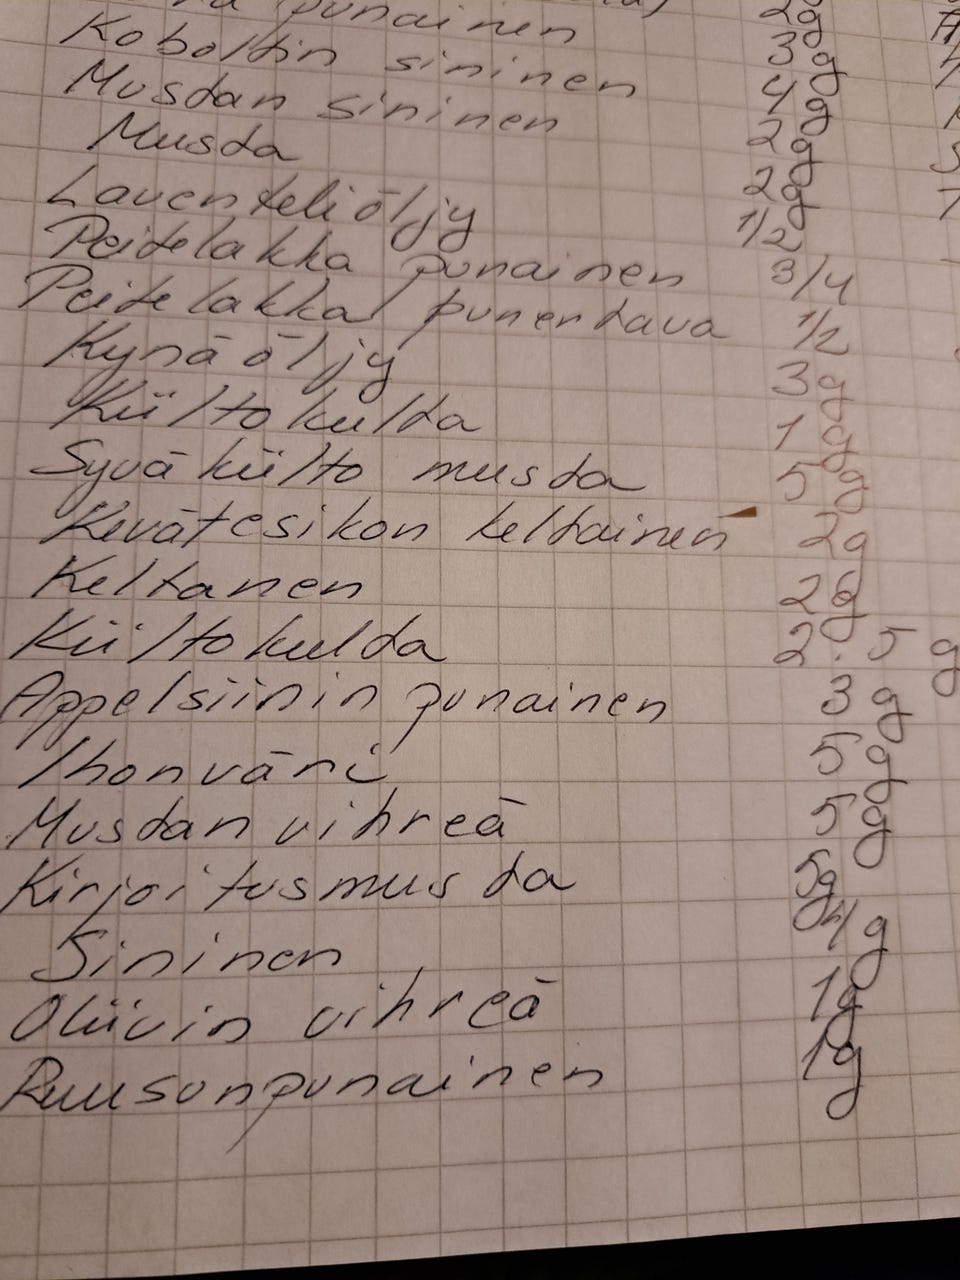 punainen 2g
Koboltin sininen 3g
Mustan sininen 4g
Musta 2g
Laventeliöljy 2g
Peitelakka punainen 1/2
Peitelakka punertava 3/4
Kynäöljy 1/2
Kiiltokulta 3g
Syväkiilto musta 1g
Kevätesikon keltainen 5g
Keltanen 2g
Kiiltokulta 2g
Appelsiinin punainen 2.5 g
Ihonväri 3g
Mustan vihreä 5g
Kirjoitusmusta 5g
Sininen 5g
Oliivin vihreä 4g
Ruusunpunainen 1g
1g